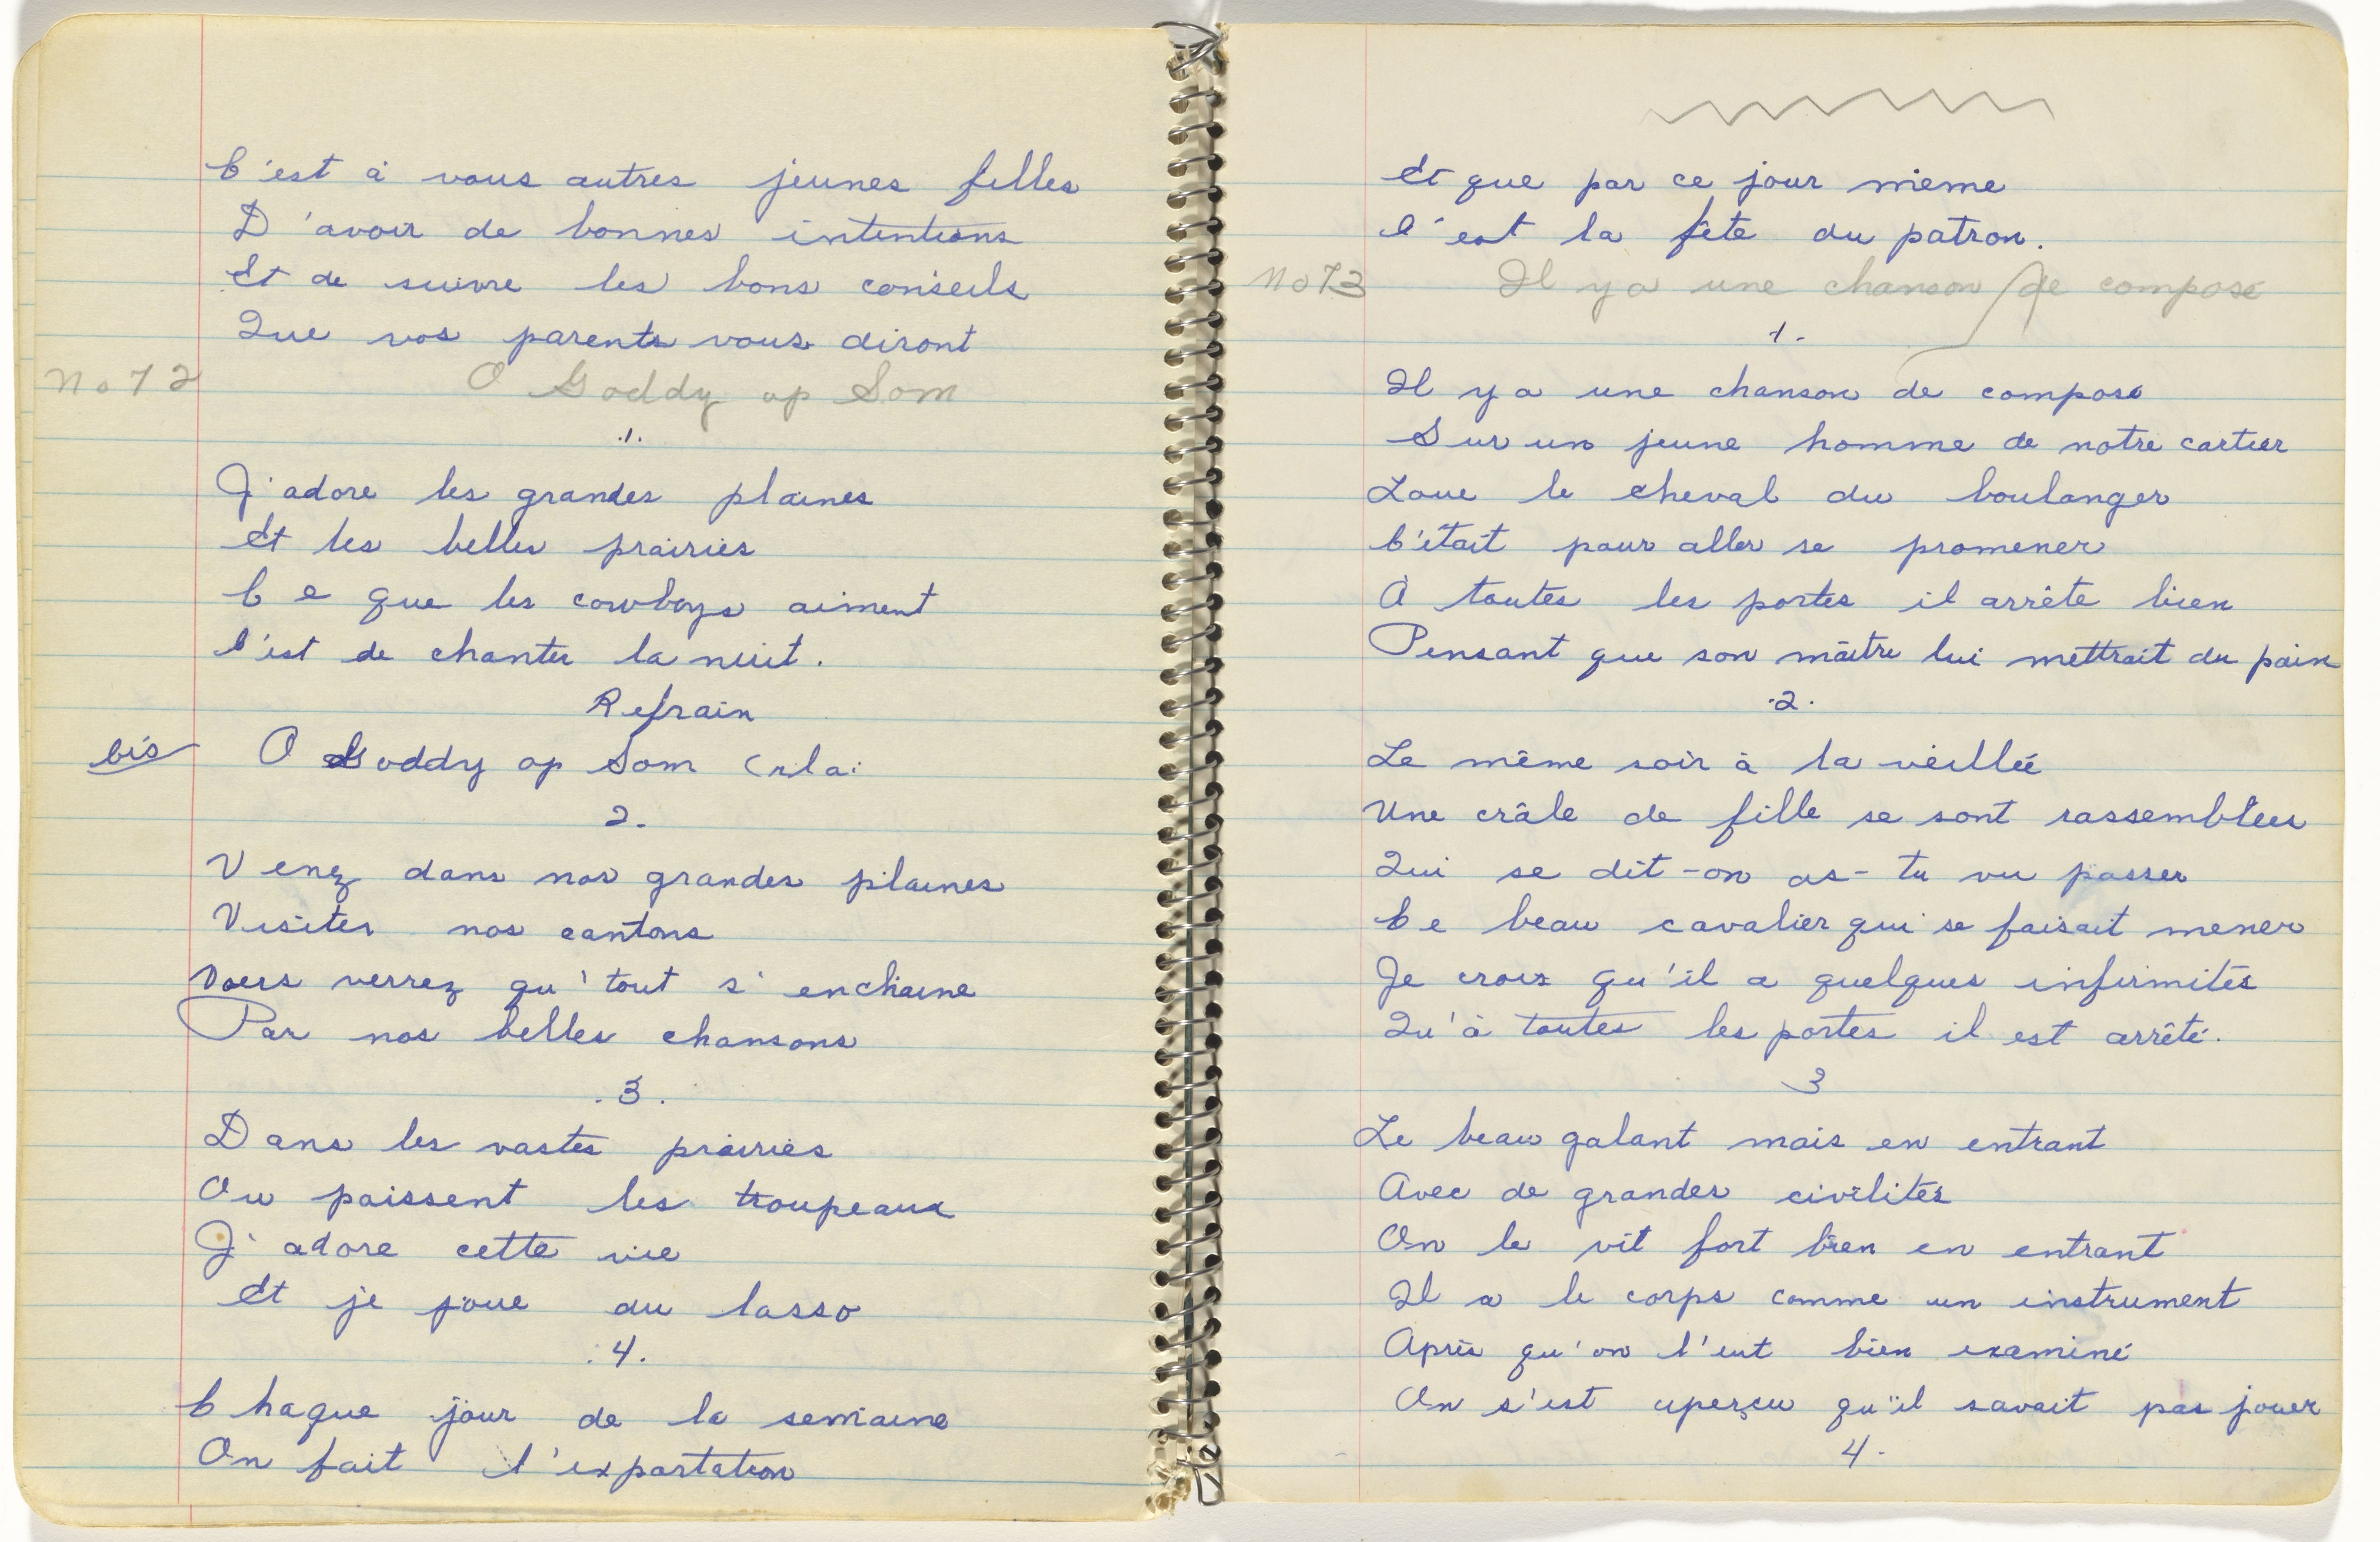 C'est à vous autres jeunes filles
D'avoir de bonnes intentions
Et de suivre les bons conseils
Que vos parents vous diront
No 72 O Goddy op Som
.1.
J'adore les grandes plaines
Et les belles prairies
Ce que les cowboys aiment
C'est de chanter la nuit.
Refrain
bis O Goddy op Som
2.
Venez dans nos grandes plaines
Visiter nos cantons
Vous verrez qu'tout s'enchaine
Par nos belles chansons
.3.
Dans les vastes prairies
Ou paissent les troupeaux
J'adore cette vie
Et je joue du lasso
.4.
Chaque jour de la semaine
On fait l'exportation
Et que par ce jour même
C'est la fête du patron.
No 73 Il y a une chanson de composé
1.
Il y a une chanson de composé
Sur un jeune homme de notre cartier
Loue le cheval du boulanger
C'était pour aller se promener
À toutes les portes il arrête bien
Pensant que son maître lui mettrait du pain
.2.
Le même soir à la veillée
Une crâle de fille se sont rassemblées
Qui se dit-on as-tu vu passer
Ce beau cavalier qui se faisait mener
Je crois qu'il a quelques infirmités
Qu'à toutes les portes il est arrêté.
3
Le beau galant mais en entrant
Avec de grandes civilités
On le vit fort bien en entrant
Il a le corps comme un instrument
Après qu'on l'eut bien examiné
On s'est aperçu qu'il savait pas jouer
4.